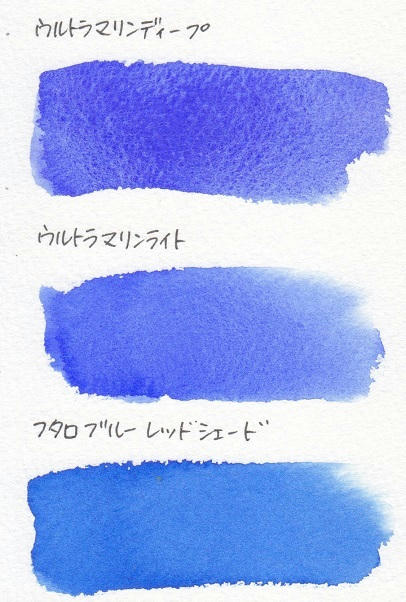 ウルトラマリンディープ
ウルトラマリンライト
フタロブルー レッドシェード